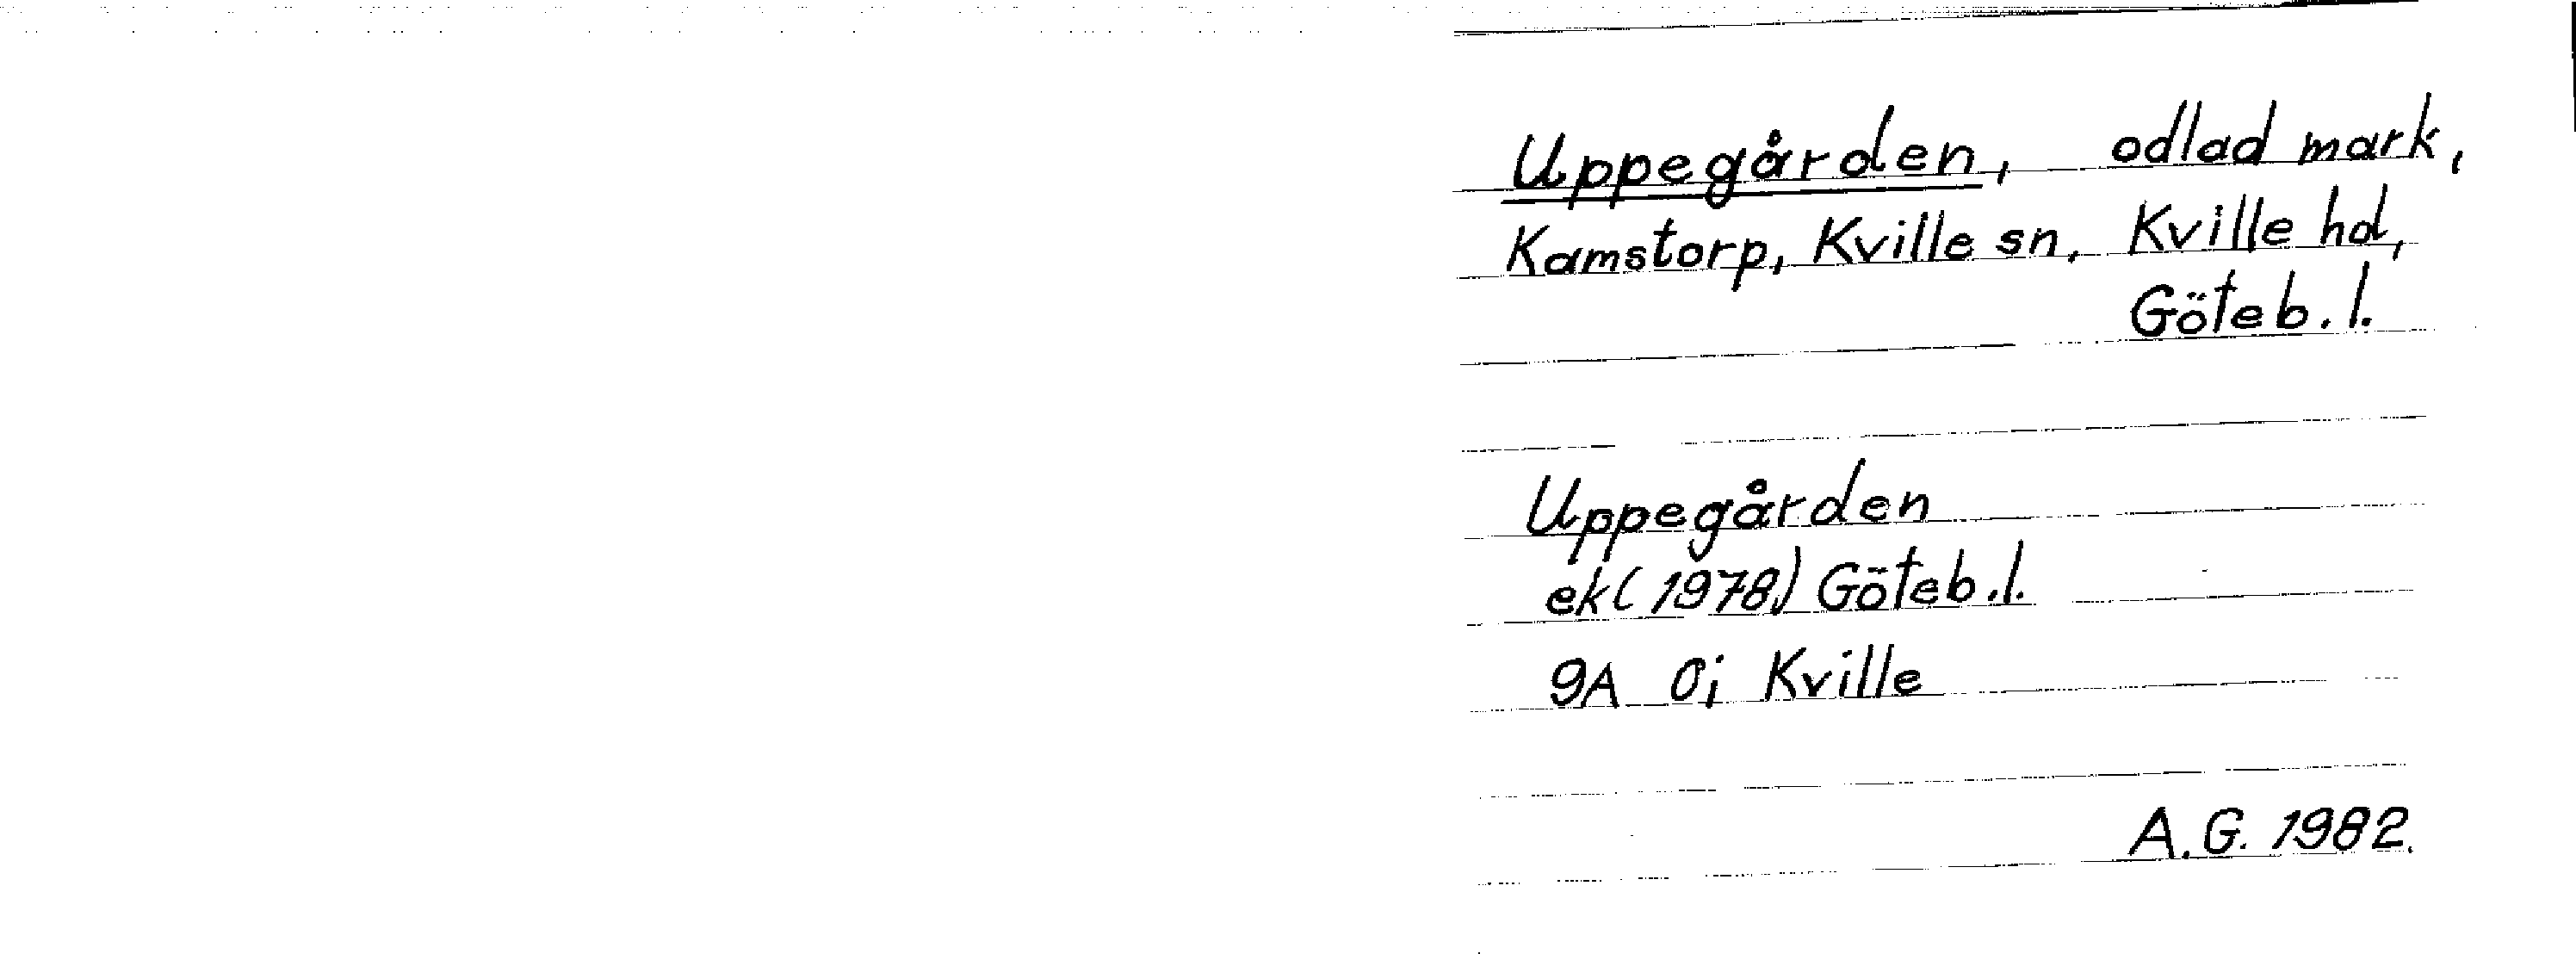 Uppegården, odlad mark,
Kamstorp, Kville sn, Kville hd,
Göteb. l.
Uppegården
ek (1978) Göteb. l.
9A 0j Kville
A.G. 1982.